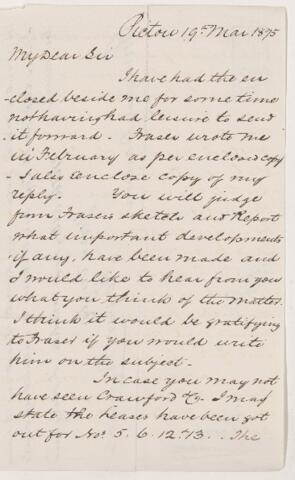 Pictou 19th Mar 1875
My Dear Sir
I have had the en
-closed beside me for some time
not having had leisure to send
it forward - Fraser wrote me
in February as per enclosed copy
- I also enclose copy of my
reply. You will judge
from Frasers sketch and Report
what important developments
if any, have been made and
I would like to hear from you
what you think of the Matter.
I think it would be gratifying
to Fraser if you would write
him on the subject -
In case you may not
have seen Crawford I may
state the leases have been got
out for Nos. 5. 6. 12 13 . The